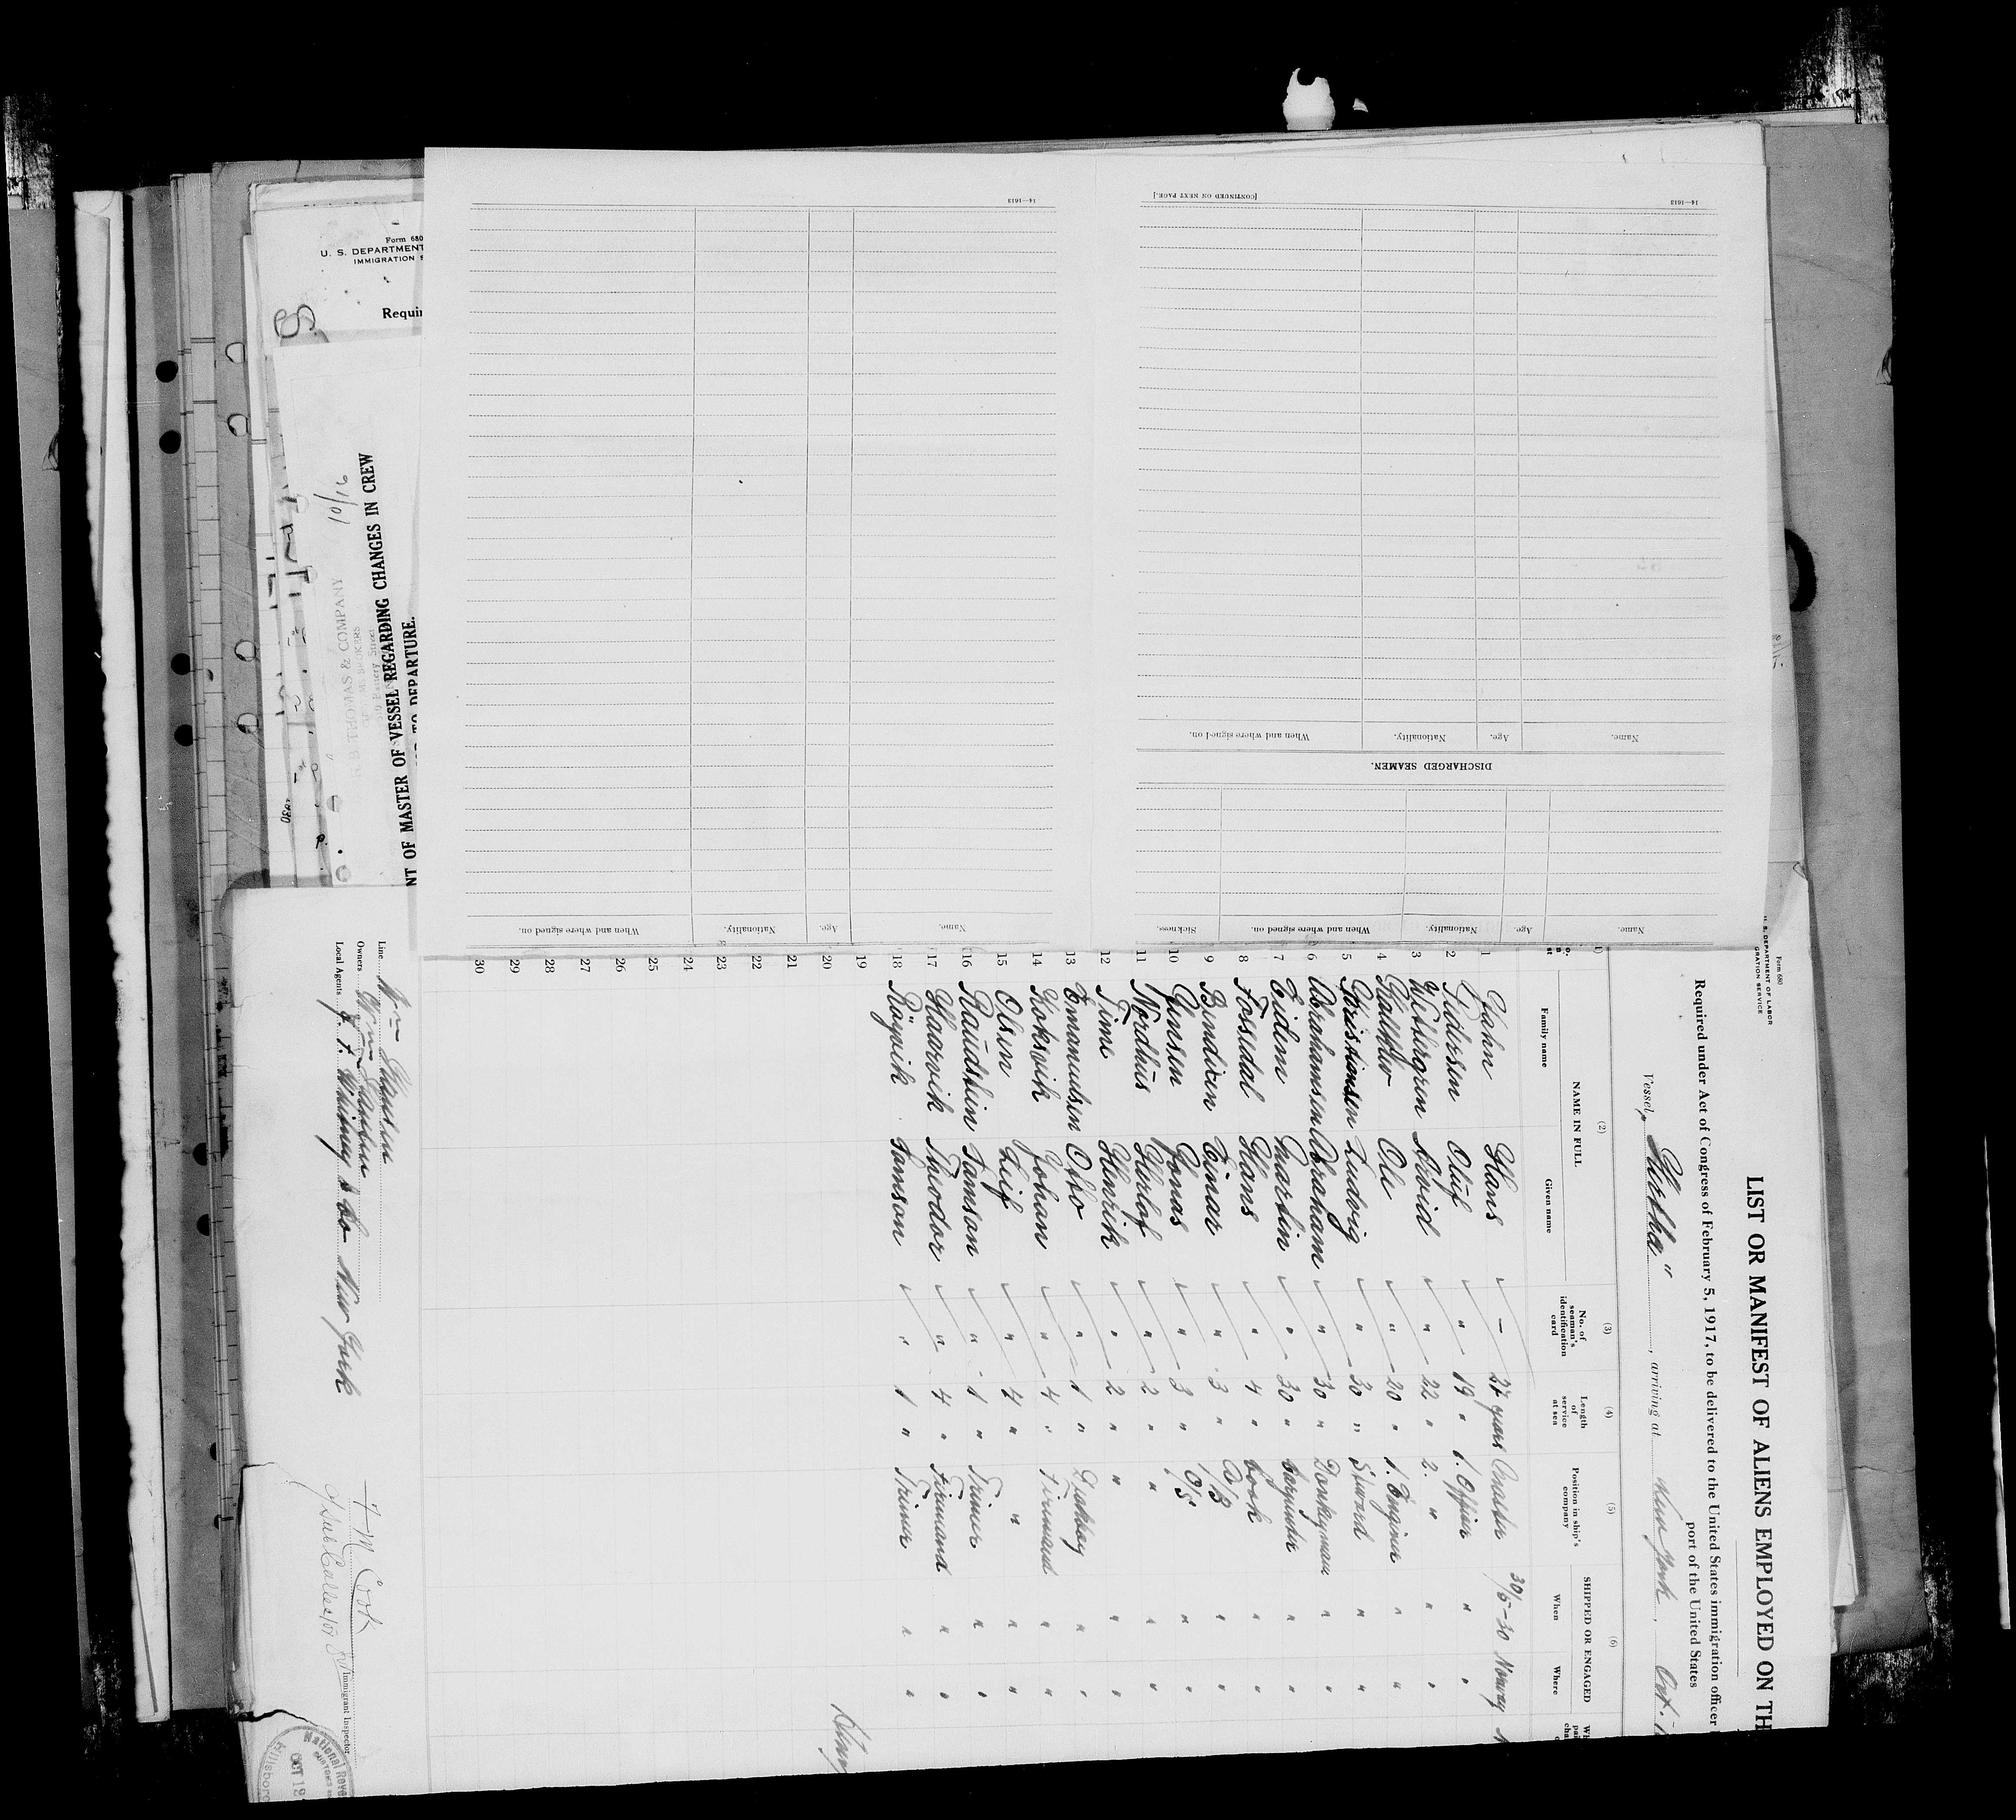 Form 680
U. S. DEPARTMENT OF LABOR
GRATION SERVICE
LIST OR MANIFEST OF ALIENS EMPLOYED ON TH
Required under Act of Congress of February 5, 1917, to be delivered to the United States immigration officer
port of the United States
Vessel, "Hertha", arriving at New York, Oct.
(2) (3) (4) (5) (6)
NAME IN FULL
Family name Given name
No. of seaman's identification card
Length of service at sea
Position in ship's company
SHIPPED OR ENGAGED
When Where
1 Jahn Hans - 27 years Master 30/5-30 Norway
2 Pedersen Oluf " 19 " 1. Officer " "
3 Wettergren David " 22 " 2. " " "
4 Ole " 20 " 1. Engineer " "
5 Kristiansen Ludvig " 30 " Steward " "
6 Abrahamsen Abraham " 30 " Donkeyman " "
7 Eidem Martin " 30 " Carpenter " "
8 Fossedal Hans " 4 " Cook " "
9 Bendixen Einar " 3 " A/B " "
10 Jensen Jonas " 3 " O/S " "
11 Nordhus Herlof " 2 " " " "
12 Time Henrik " 2 " " " "
13 Emanuelsen Otto " 1 " Deckboy " "
14 Koksvik Johan " 4 " Firemand " "
15 Olsen Leif " 4 " " " "
16 Raudstein Samson " 1 " Trimer " "
17 Haarvik Theodor " 4 " Firemand " "
18 Röyvik Samson " 1 " Trimer " "
19
20
21
22
23
24
25
26
27
28
29
30
Line Wm Hansen
Owners Wm Hansen
Local Agents J. F. Whitney & Co New York
F M Cook
Sub Collector
Immigrant Inspector
National Reve
OCT 12
[CONTINUED ON NEXT PAGE.]
14—1613
14—1613
Name. Age. Nationality. When and where signed on.
DISCHARGED SEAMEN.
Name. Age. Nationality. When and where signed on. Sickness.
Name. Age. Nationality. When and where signed on.
Form 680
U. S. DEPARTMENT
IMMIGRATION S
Requir
NT OF MASTER OF VESSEL REGARDING CHANGES IN CREW
TO DEPARTURE.
10/16
THOMAS & COMPANY